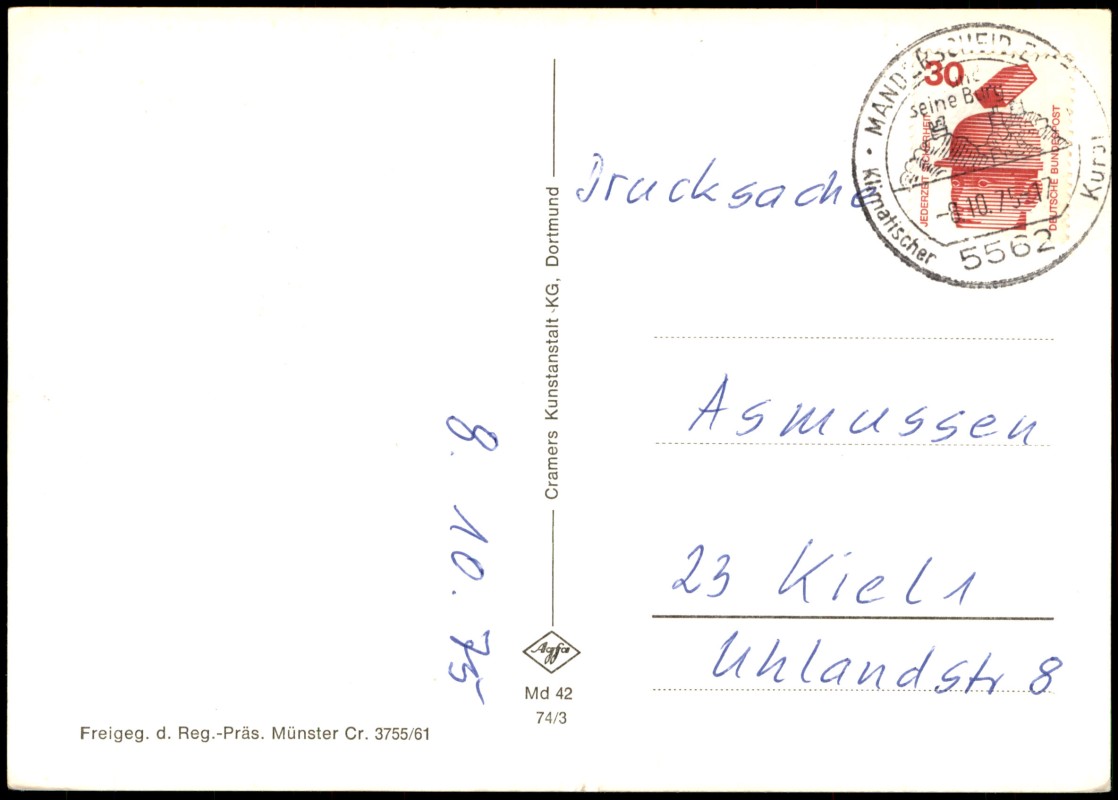 MANDERSCHEID
und
seine Burg
-9.10.75-17
Klimatischer
5562
30
JEDERZEIT SICHERHEIT
DEUTSCHE BUNDESPOST
Drucksache
Asmussen
23 Kiel 1
Uhlandstr 8
Cramers Kunstanstalt KG, Dortmund
Agfa
Md 42
74/3
8. 10. 75
Freigeg. d. Reg.-Präs. Münster Cr. 3755/61